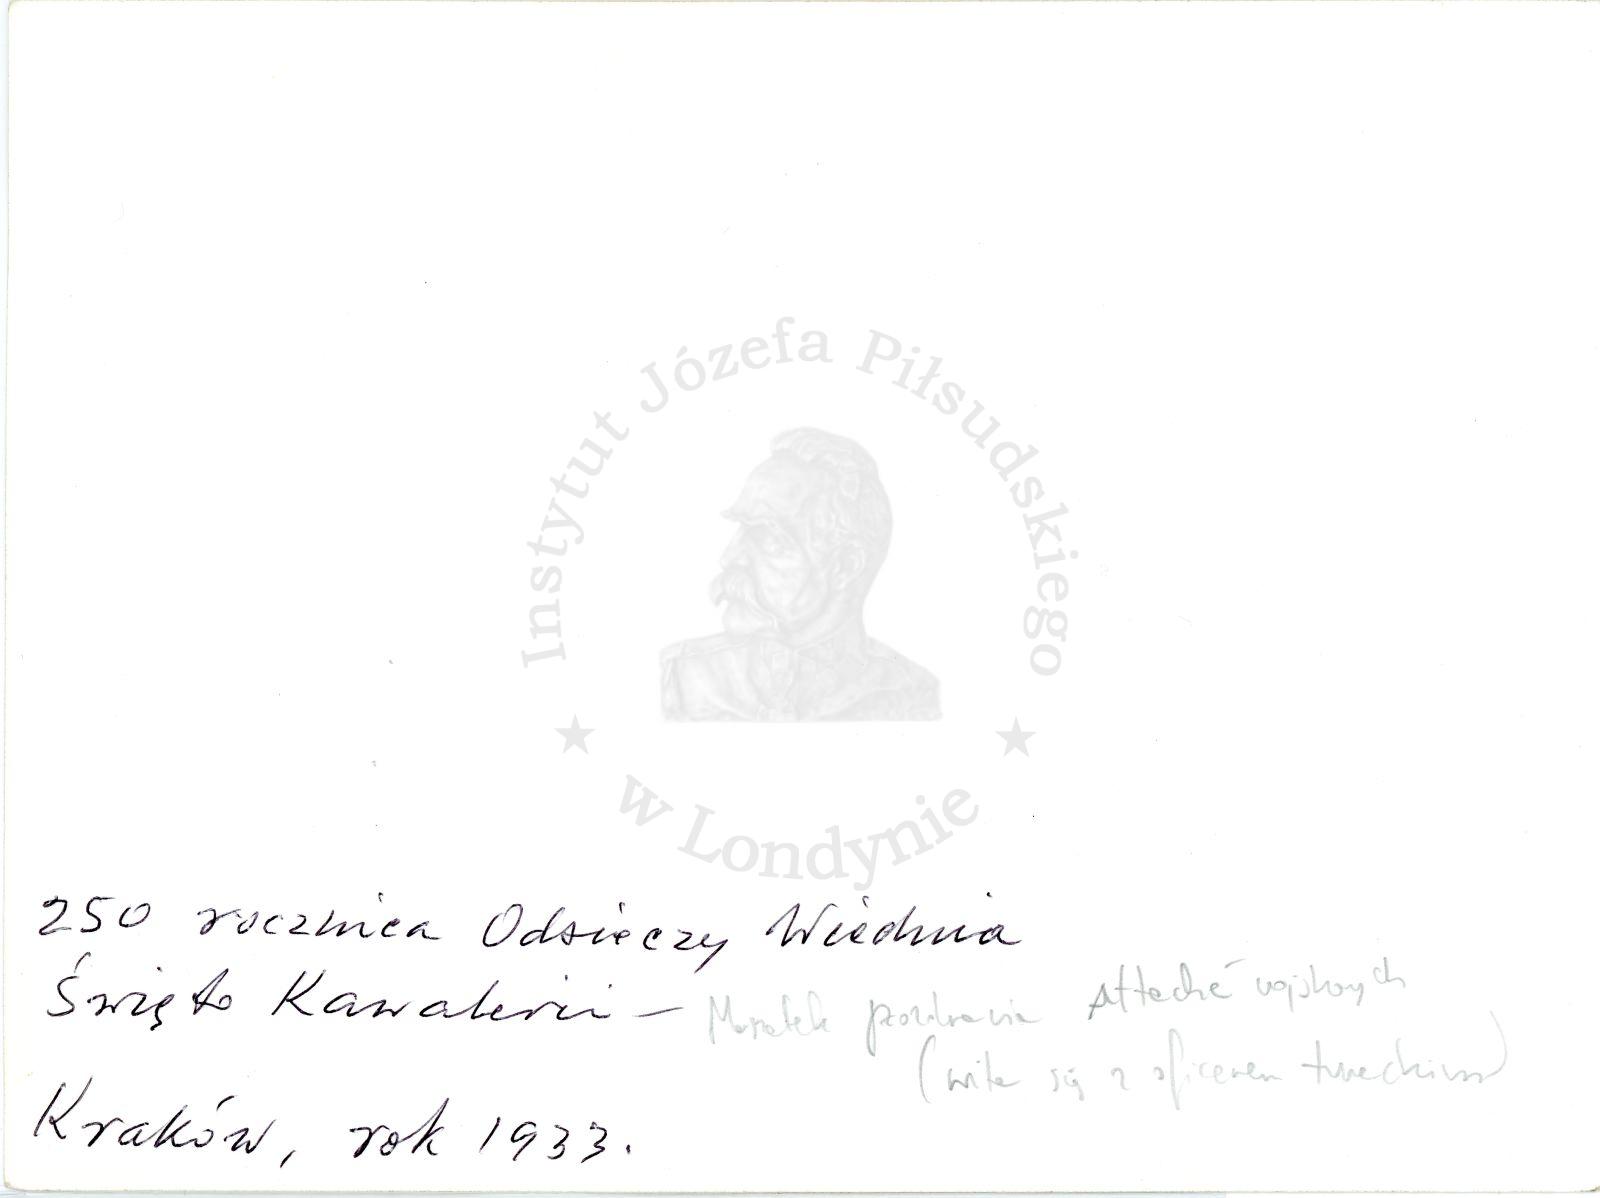 Instytut Józefa Piłsudskiego
w Londynie
250 rocznica Odsieczy Wiednia
Święto Kawalerii – Marszałek pozdrawia Attaché wojskowych
(wita się z oficerem tureckim)
Kraków, rok 1933.